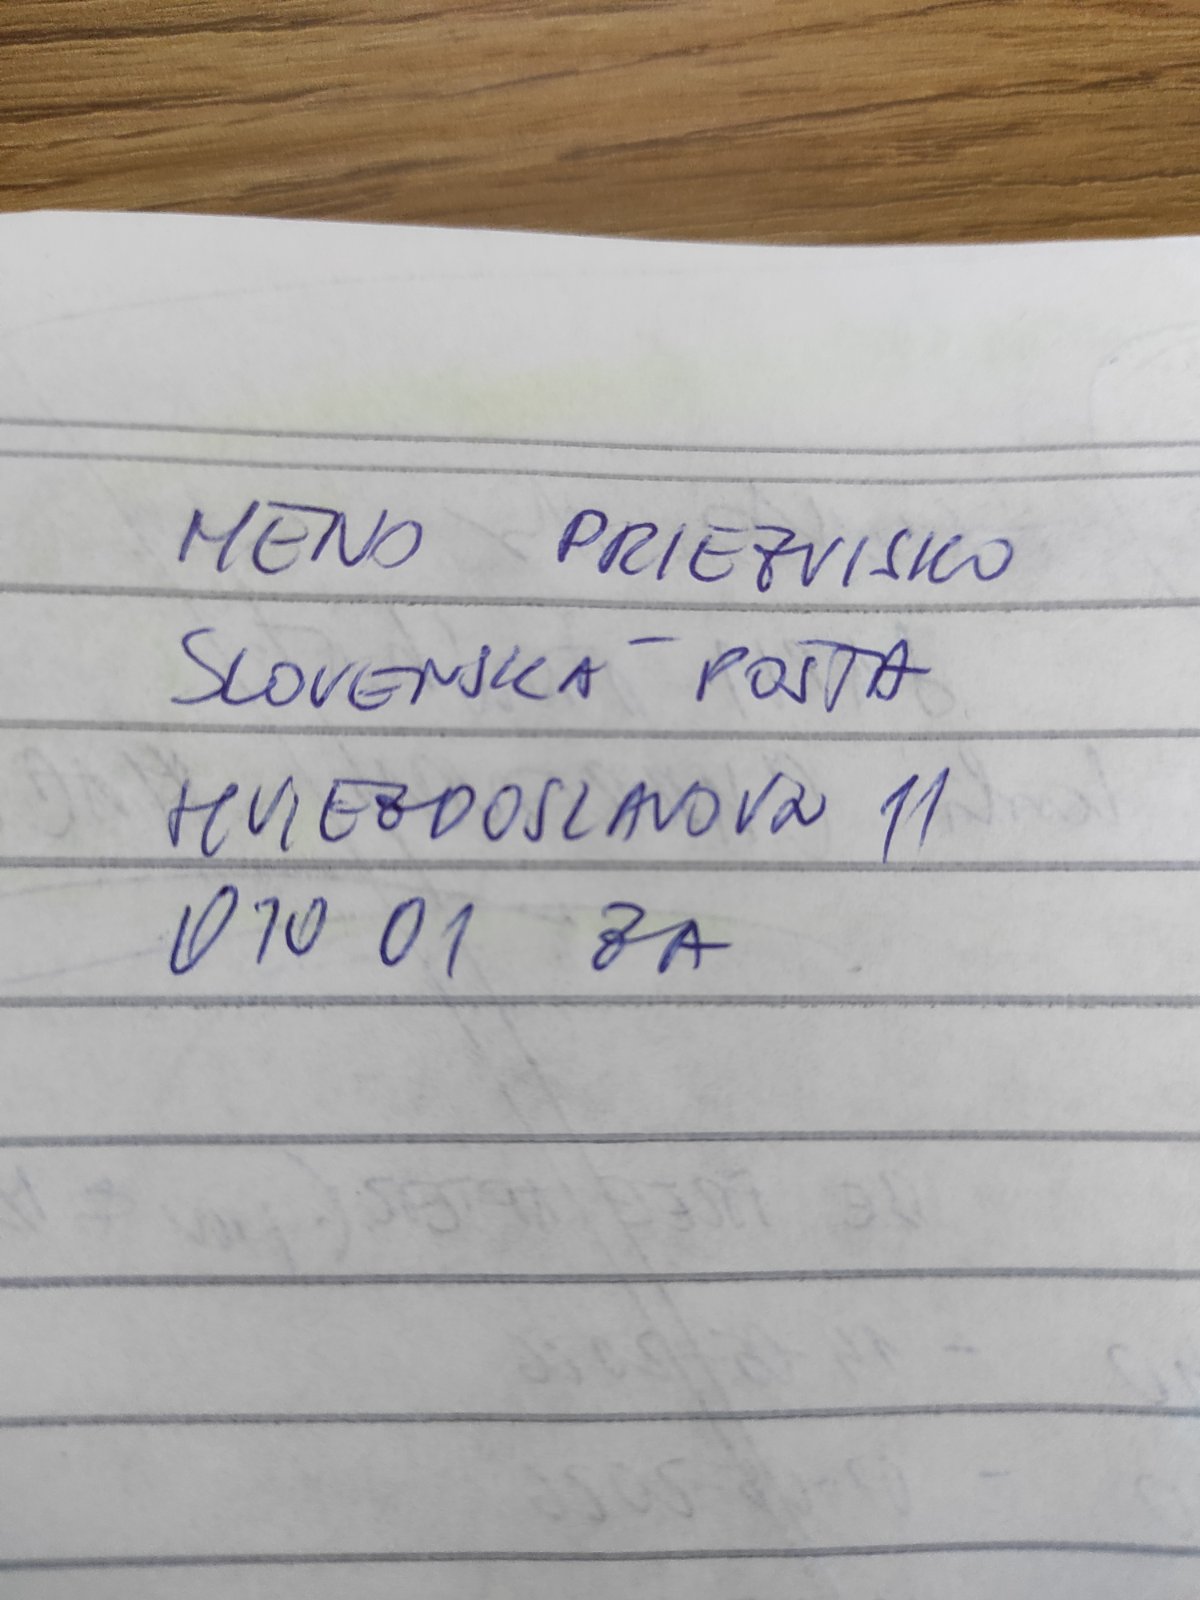 MENO PRIEZVISKO
SLOVENSKÁ POŠTA
HVIEZDOSLAVOVA 11
010 01 ZA